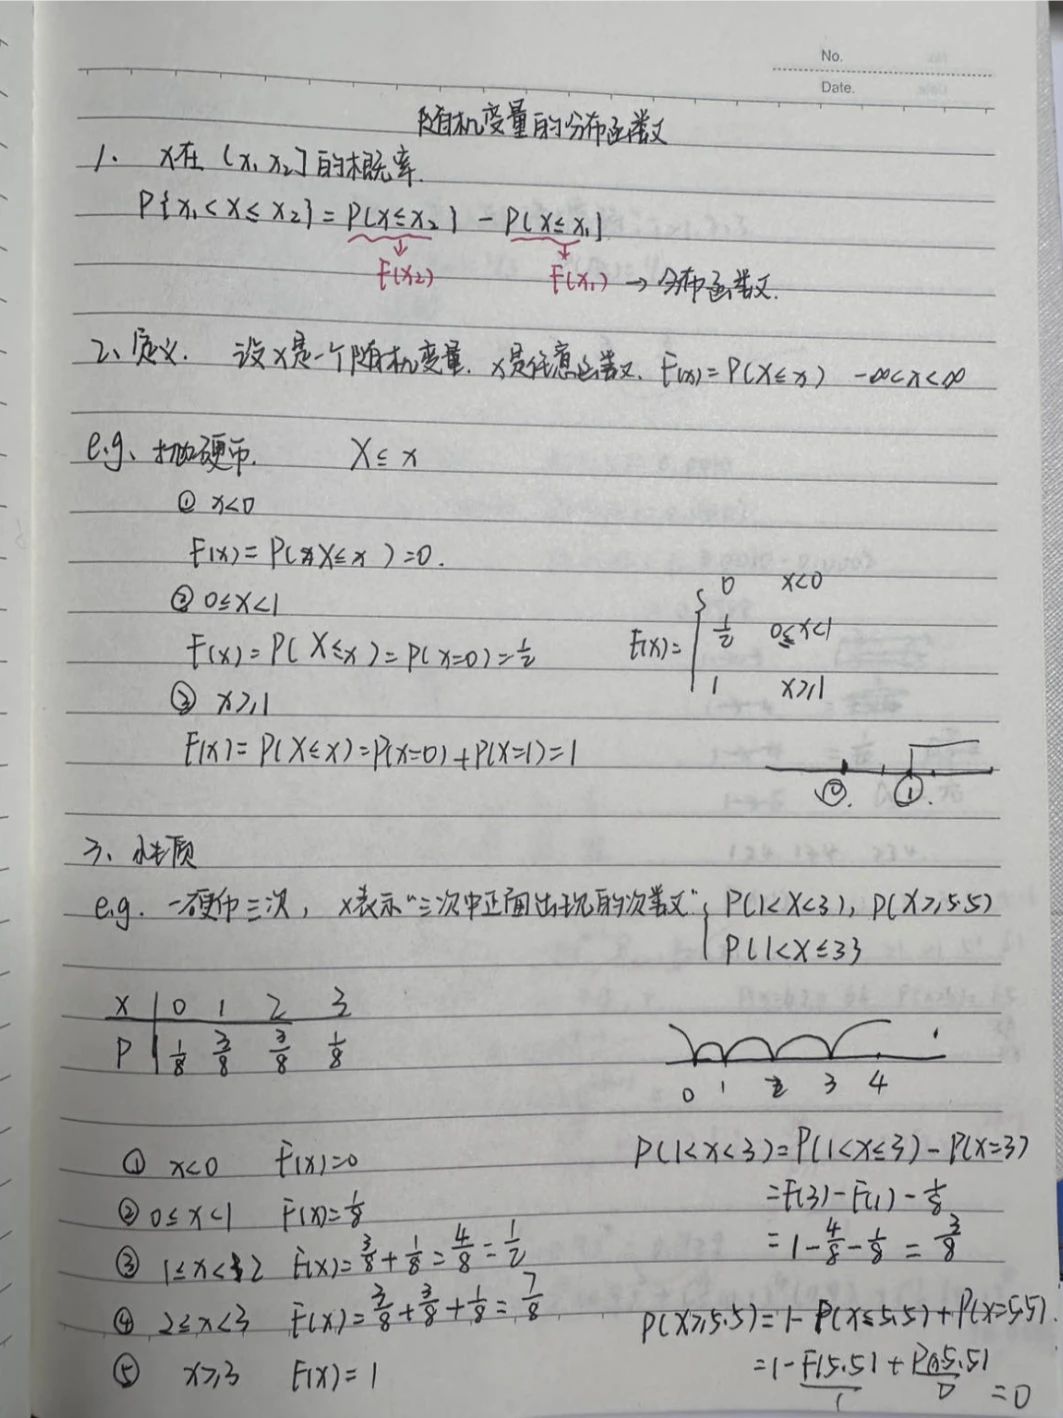 No.
Date.
随机变量的分布函数
1. X在 (x₁, x₂] 的概率.
P{x₁<X≤x₂} = P{X≤x₂} - P{X≤x₁}
F(x₂) F(x₁) → 分布函数.
2、定义. 设X是一个随机变量. x是任意函数. F(x)=P(X≤x) -∞<x<∞
e.g、抛硬币. X≤x
① x<0
F(x)=P(X≤x)=0.
② 0≤x<1
F(x)=P(X≤x)=P(x=0)=1/2
③ x≥1
F(x)=P(X≤x)=P(x=0)+P(X=1)=1
F(x)= { 0 x<0
1/2 0≤x<1
1 x≥1
0. 1.
3、性质
e.g. 一硬币三次, X表示“三次中正面出现的次数”, P(1<X<3), P(X≥5.5)
P{1<X≤3}
X 0 1 2 3
P 1/8 3/8 3/8 1/8
0 1 2 3 4
① x<0 F(x)=0
② 0≤x<1 F(x)=1/8
③ 1≤x<2 F(x)=3/8+1/8=4/8=1/2
④ 2≤x<3 F(x)=3/8+3/8+1/8=7/8
⑤ x≥3 F(x)=1
P(1<x<3)=P(1<x≤3)-P(x=3)
=F(3)-F(1)-1/8
=1-4/8-1/8=3/8
P(X≥5.5)=1-P(X≤5.5)+P(X=5.5).
=1-F(5.5)+P(5.5)
1 0 =0